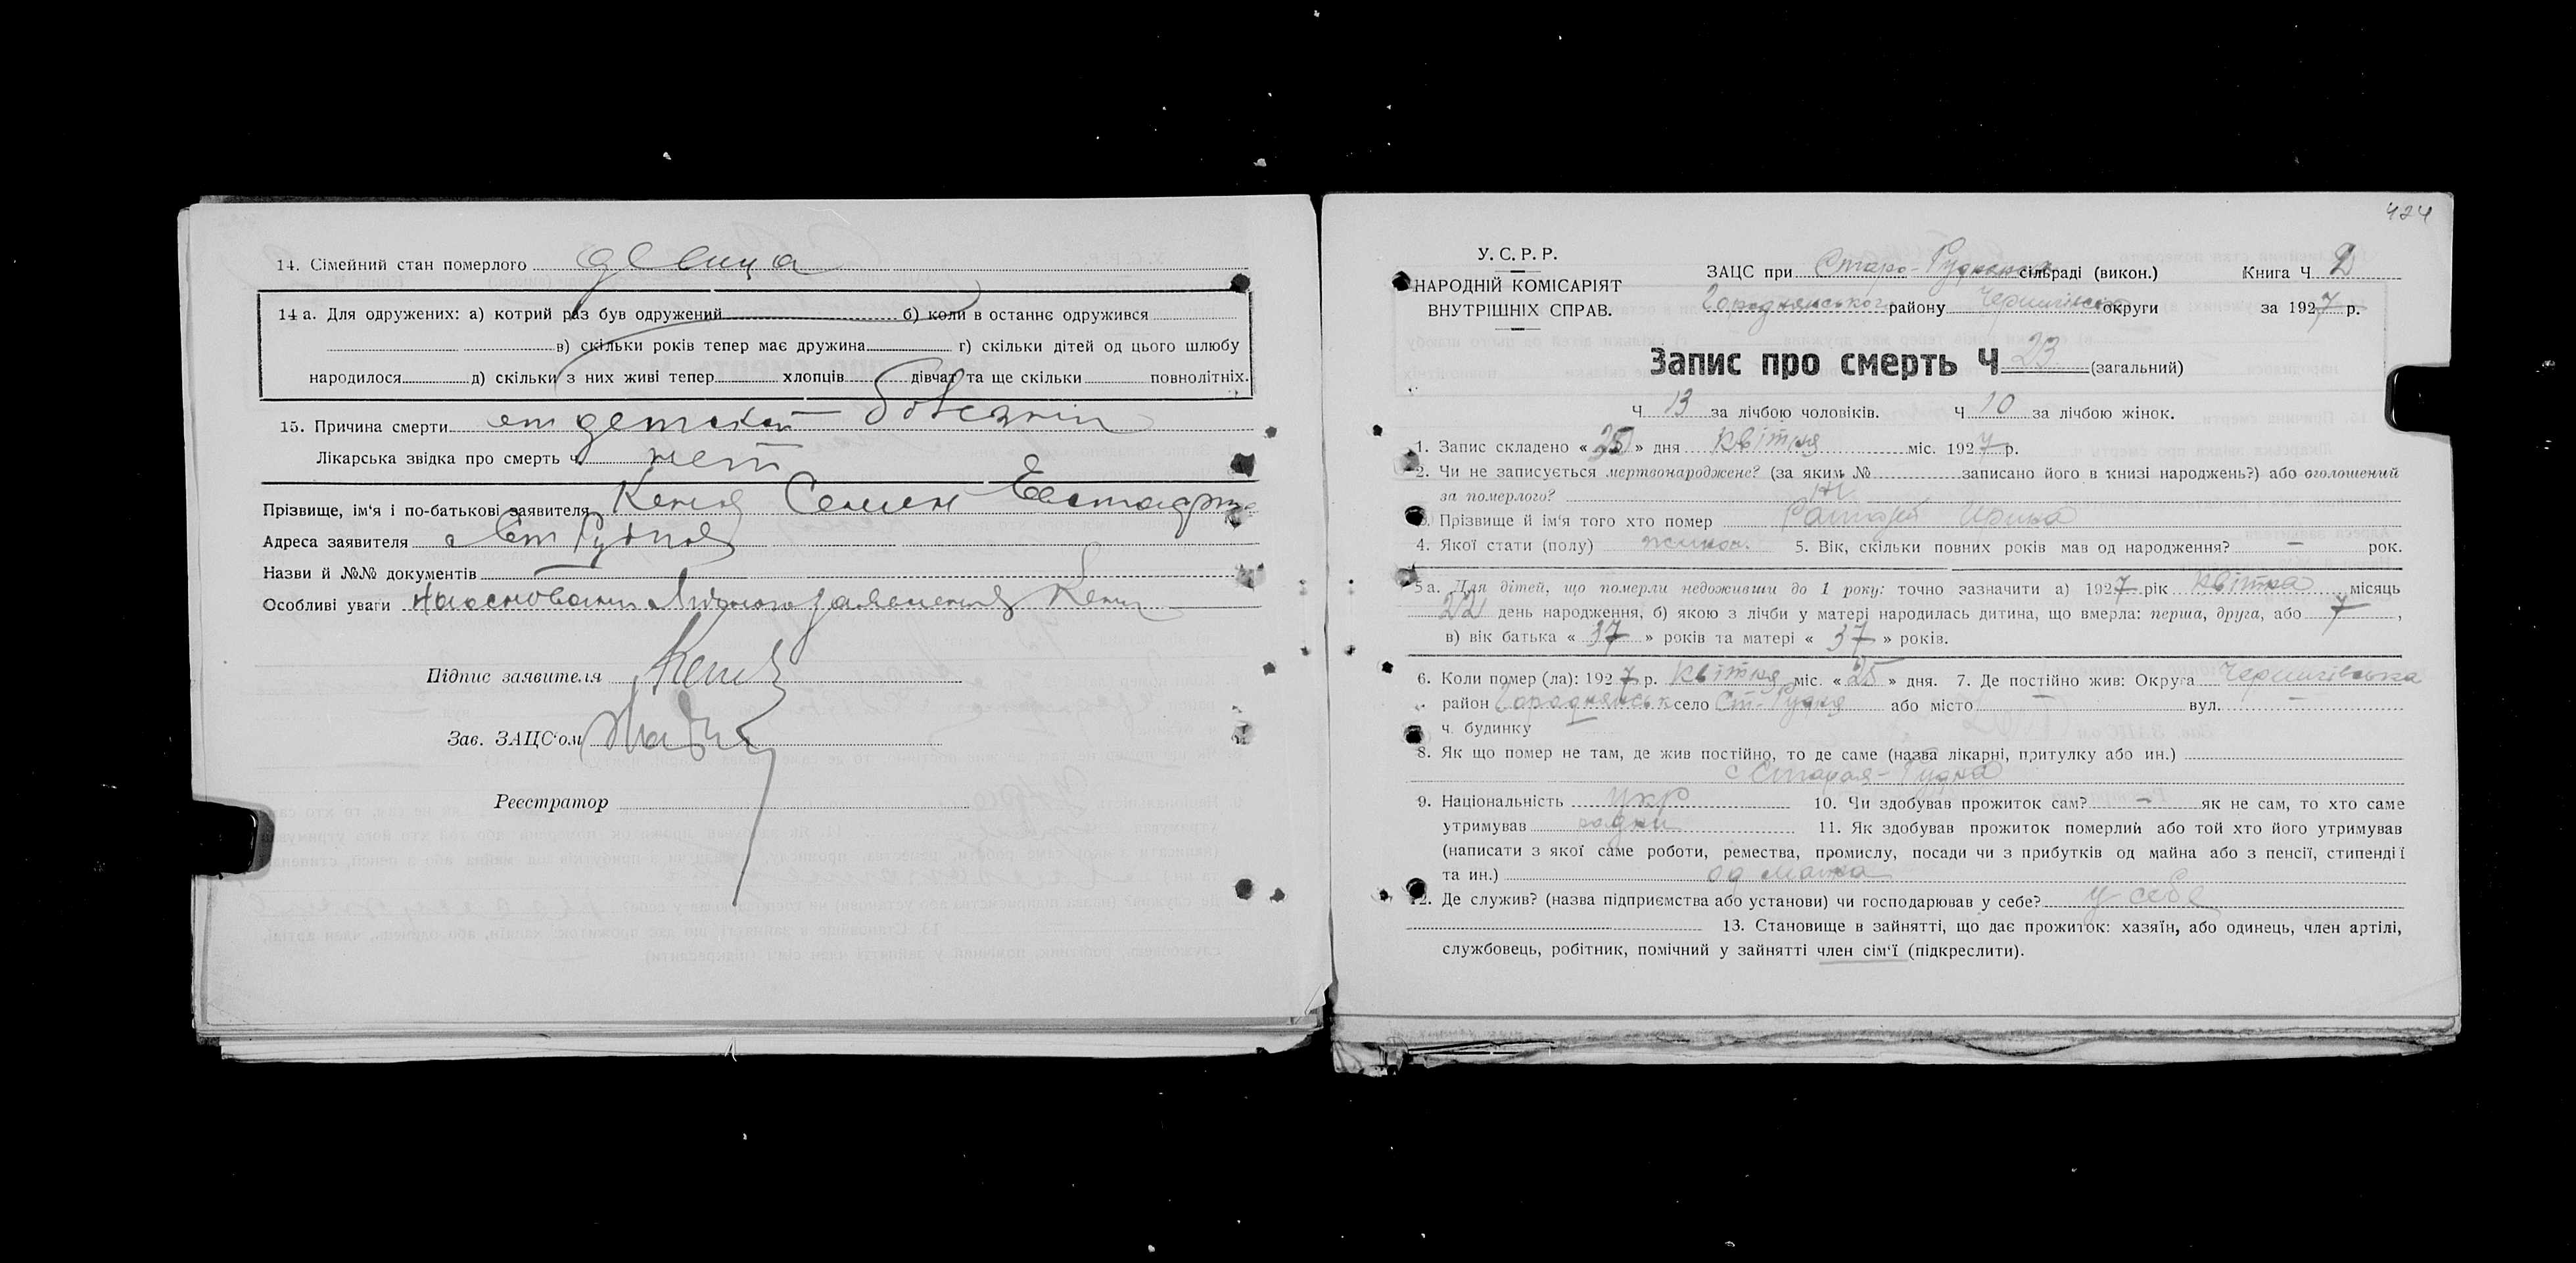 14. Сімейний стан померлого девица
14 а. Для одружених: а) котрий раз був одружений б) коли в останнє одружився
в) скільки років тепер має дружина г) скільки дітей од цього шлюбу
народилося д) скільки з них живі тепер хлопців дівчат та ще скільки повнолітніх.
15. Причина смерти от детской болезни
Лікарська звідка про смерть ч. нет
Прізвище, ім'я і по-батькові заявителя Семен
Адреса заявителя Ст Рудня
Назви й №№ документів
Особливі уваги На основании заявления
Підпис заявителя
Зав. ЗАЦС'ом
Реєстратор
424
У. С. Р. Р.
НАРОДНІЙ КОМІСАРІЯТ
ВНУТРІШНІХ СПРАВ.
ЗАЦС при Старо-Руднянск сільраді (викон.) Книга Ч 2
Городнянського району Чернігівсько округи за 1927 р.
Запис про смерть Ч 23 (загальний)
Ч 13 за лічбою чоловіків. Ч 10 за лічбою жінок.
1. Запис складено « 25 » дня квітня міс. 1927 р.
2. Чи не записується мертвонароджене? (за яким № записано його в книзі народжень?) або оголошений
за померлого? Ні
3. Прізвище й ім'я того хто помер Ирина
4. Якої стати (полу) жиноч. 5. Вік, скільки повних років мав од народження? — рок.
5а. Для дітей, що померли недоживши до 1 року: точно зазначити а) 1927 рік квітня місяць
22 день народження, б) якою з лічби у матері народилась дитина, що вмерла: перша, друга, або 7,
в) вік батька « 37 » років та матері « 37 » років.
6. Коли помер (ла): 1927 р. квітня міс. « 25 » дня. 7. Де постійно жив: Округа Чернигівська
район Городнянськ село Ст-Рудня або місто — вул. —
ч. будинку —
8. Як що помер не там, де жив постійно, то де саме (назва лікарні, притулку або ин.)
с Старая-Рудня
9. Національність укр 10. Чи здобував прожиток сам? — як не сам, то хто саме
утримував родни 11. Як здобував прожиток померлий або той хто його утримував
(написати з якої саме роботи, ремества, промислу, посади чи з прибутків од майна або з пенсії, стипендії
та ин.) од майна
12. Де служив? (назва підприємства або установи) чи господарював у себе? у себе
13. Становище в зайнятті, що дає прожиток: хазяїн, або одинець, член артілі,
службовець, робітник, помічний у зайнятті член сім'ї (підкреслити).